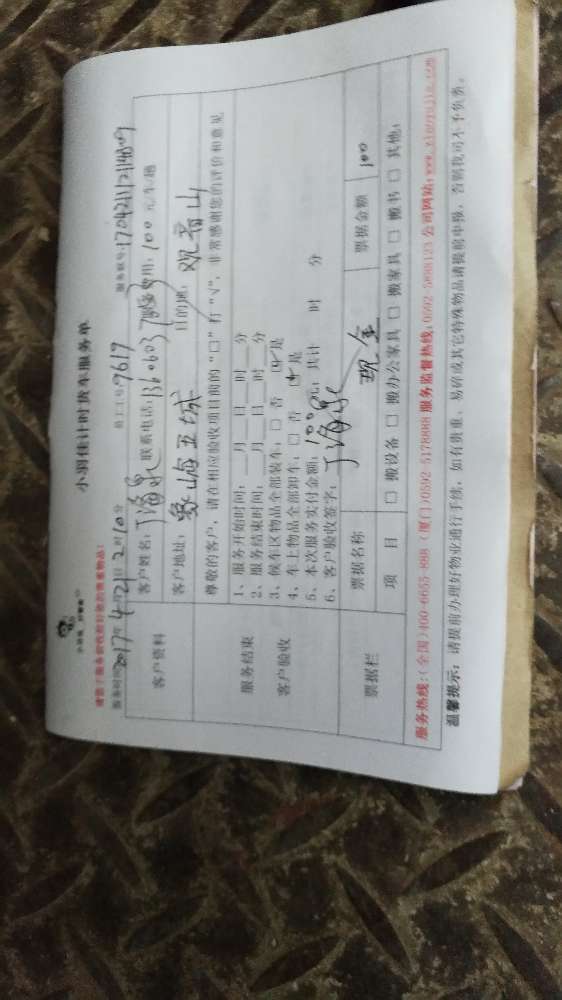 小羽佳计时货车服务单
服务时间:2017年4月21日2时10分 员工工号:9617 服务账号:17042112114809
客户资料
客户姓名: 联系电话: 费用:100元/车/趟
客户地址: 目的地:观音山
服务结束
客户验收
尊敬的客户,请在相应验收项目前的“□”打“√”,非常感谢您的评价和意见
1、服务开始时间:___月___日___时___分
2、服务结束时间:___月___日___时___分
3、候车区物品全部装车:□ 否 ☑ 是
4、车上物品全部卸车:□ 否 ☑ 是
5、本次服务实付金额:100元; 共计 时 分
6、客户验收签字:
票据栏
票据名称 现金 票据金额 100
项 目 □ 搬设备 □ 搬办公家具 □ 搬家具 □ 搬书 □ 其他:
服务热线:(全国)400-6655-888 (厦门)0592-5178888 服务监督热线:0592-5888123 公司网站:www.xiaoyujia.com
温馨提示:请提前办理好物业通行手续,如有贵重、易碎或其它特殊物品请提前申报,否则我司不予负责。